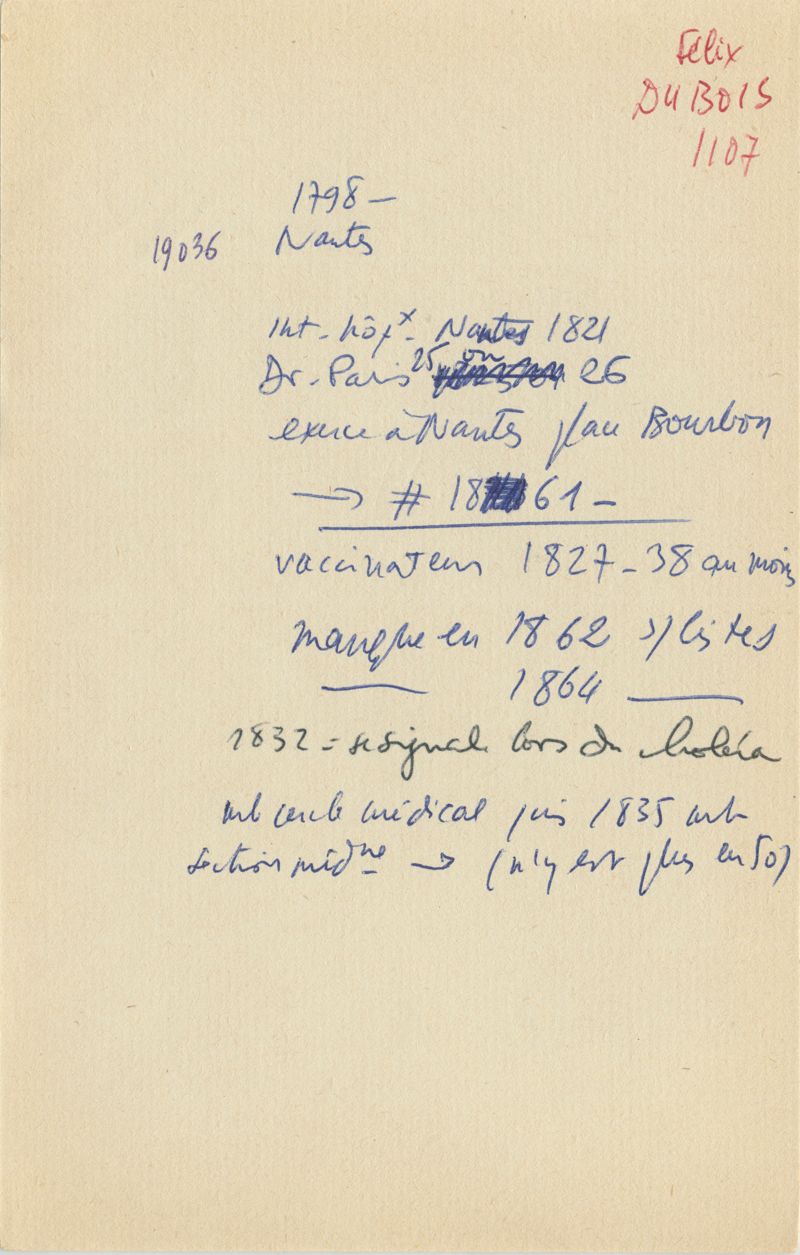 Félix
DUBOIS
1107
1798 –
19036 Nantes
Int. hôpx. Nantes 1821
Dr. Paris 25 ou 26
exerce à Nantes place Bourbon
→ # 1861 –
vaccinateur 1827 – 38 au moins
manque en 1862 s/ listes
—— 1864 ——
1832 = se signale lors du choléra
mb cercle médical puis 1835 mb
section médne → (n'y est plus en 50)